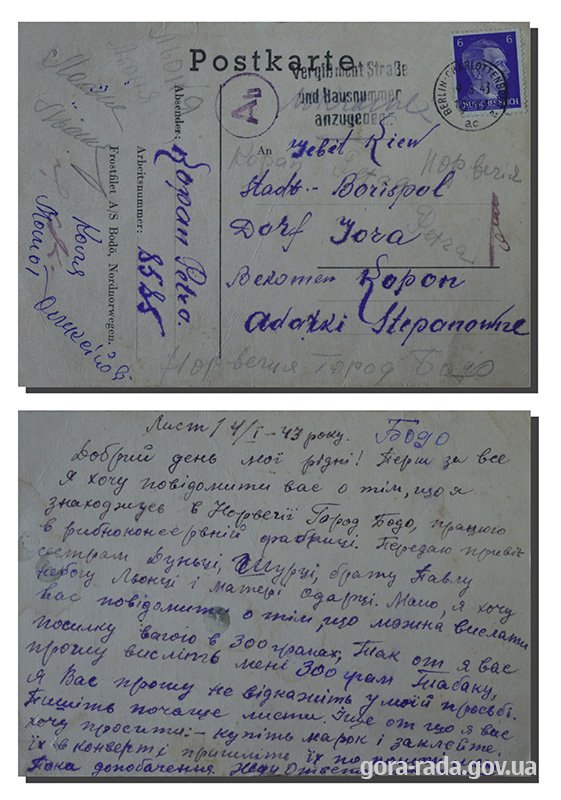 Postkarte
6 6
BERLIN-CHARLOTTENBURG
43
ac
Vergiß nicht Straße
und Hausnummer
anzugeben
Ab
An
Absender:
Копан Petro.
Arbeitsnummer:
8585
Frostfilet A/S Bodö, Nordnorwegen.
Коля
Gebit Kiew
Stadt - Borispol
Dorf Gora
Bekomen Kopan
Adarki Stepanowne
Копан
Норвечия
Норвечия Город Бодо
Лист 14/I-43 року. Бодо
Добрий день мої рідні! Перш за все
я хочу повідомити вас о тім, що я
знаходжусь в Норвегії Город Бодо, працюю
в рибноконсервній фабриці. Передаю привіт
сестрам Дуньці, Шурці, брату Павлу
небогу Льонці і матері Одарці. Мамо, я хочу
вас повідомити о тім, що можна вислати
посилку вагою в 300 грамах, Так от я вас
прошу висліть мені 300 грам Табаку,
я Вас прошу не відкажіть у моїй просьбі.
Пишіть почаще листи. Іще от що я вас
хочу просити:- купіть марок і заклейте
їх в конверті пришліте їх
Пока допобачення. Жду Ответ
gora-rada.gov.ua